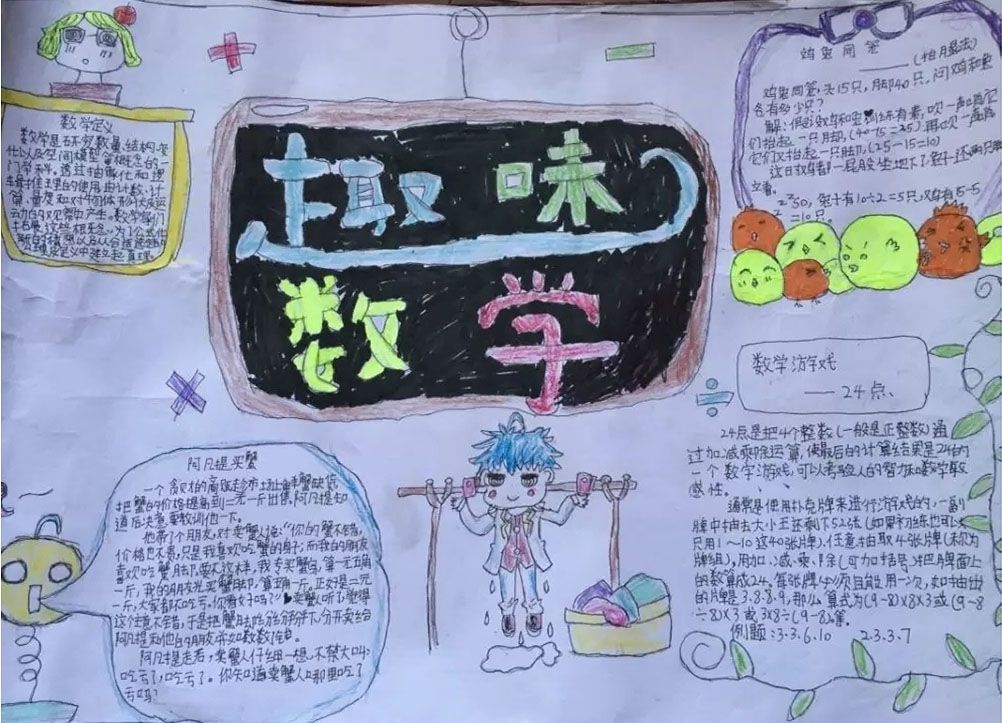 趣味
数学
数学定义
数学是研究数量、结构、变
化以及空间模型等概念的一
门学科。透过抽象化和逻
辑推理的使用,由计数、计
算、量度和对物体形状及运
动的观察中产生。数学家们
拓展这些概念,为了公式化
新的猜想以及从合适选定的
定义中建立起真理。
鸡兔同笼
——(抬脚法)
鸡兔同笼,头15只,脚40只,问鸡和兔
各有多少只?
解:假设鸡和兔训练有素,吹一声哨,它
们抬起一只脚,(40-15=25)再吹一声哨,
它们又抬起一只脚,(25-15=10)
这时鸡都一屁股坐地下了,兔子还两只脚
立着。
所以,兔子有10÷2=5只,鸡有15-5
=10只。
数学游戏
——24点、
24点是把4个整数(一般是正整数)通
过加减乘除运算,使最后的计算结果是24的
一个数学游戏,可以考验人的智力和数学敏
感性。
通常是使用扑克牌来进行游戏的,一副
牌中抽去大小王还剩下52张(如果初练也可以
只用1~10这40张牌),任意抽取4张牌(称为
牌组),用加、减、乘、除(可加括号)把牌面上
的数算成24,每张牌必须且能用一次,如抽出
的牌是3.8.8.9,那么算式为(9-8)×8×3或(9-8
÷8)×3或3×8÷(9-8)等。
例题:3.3.6.10 2.3.3.7
阿凡提买蟹
一个贪财的商贩趁市场上海蟹缺货
把蟹的价格提高到二元一斤出售,阿凡提知
道后决意要教训他一下。
他带个朋友,对卖蟹人说:“你的蟹不错,
价格也不贵,只是我喜欢吃蟹的身子;而我的朋友
喜欢吃蟹脚,要不这样,我专买蟹身,算一元五角
一斤,我的朋友光买蟹脚,算五角一斤,正好是二元
一斤,大家都不吃亏,你看好吗?”卖蟹人听了觉得
这个主意不错,于是把蟹脚 分开卖给
阿凡提和他的朋友,并如数数了钱。
阿凡提走后,卖蟹人仔细一想,不禁大叫:
吃亏了,吃亏了。你知道卖蟹人哪里吃了
亏吗?